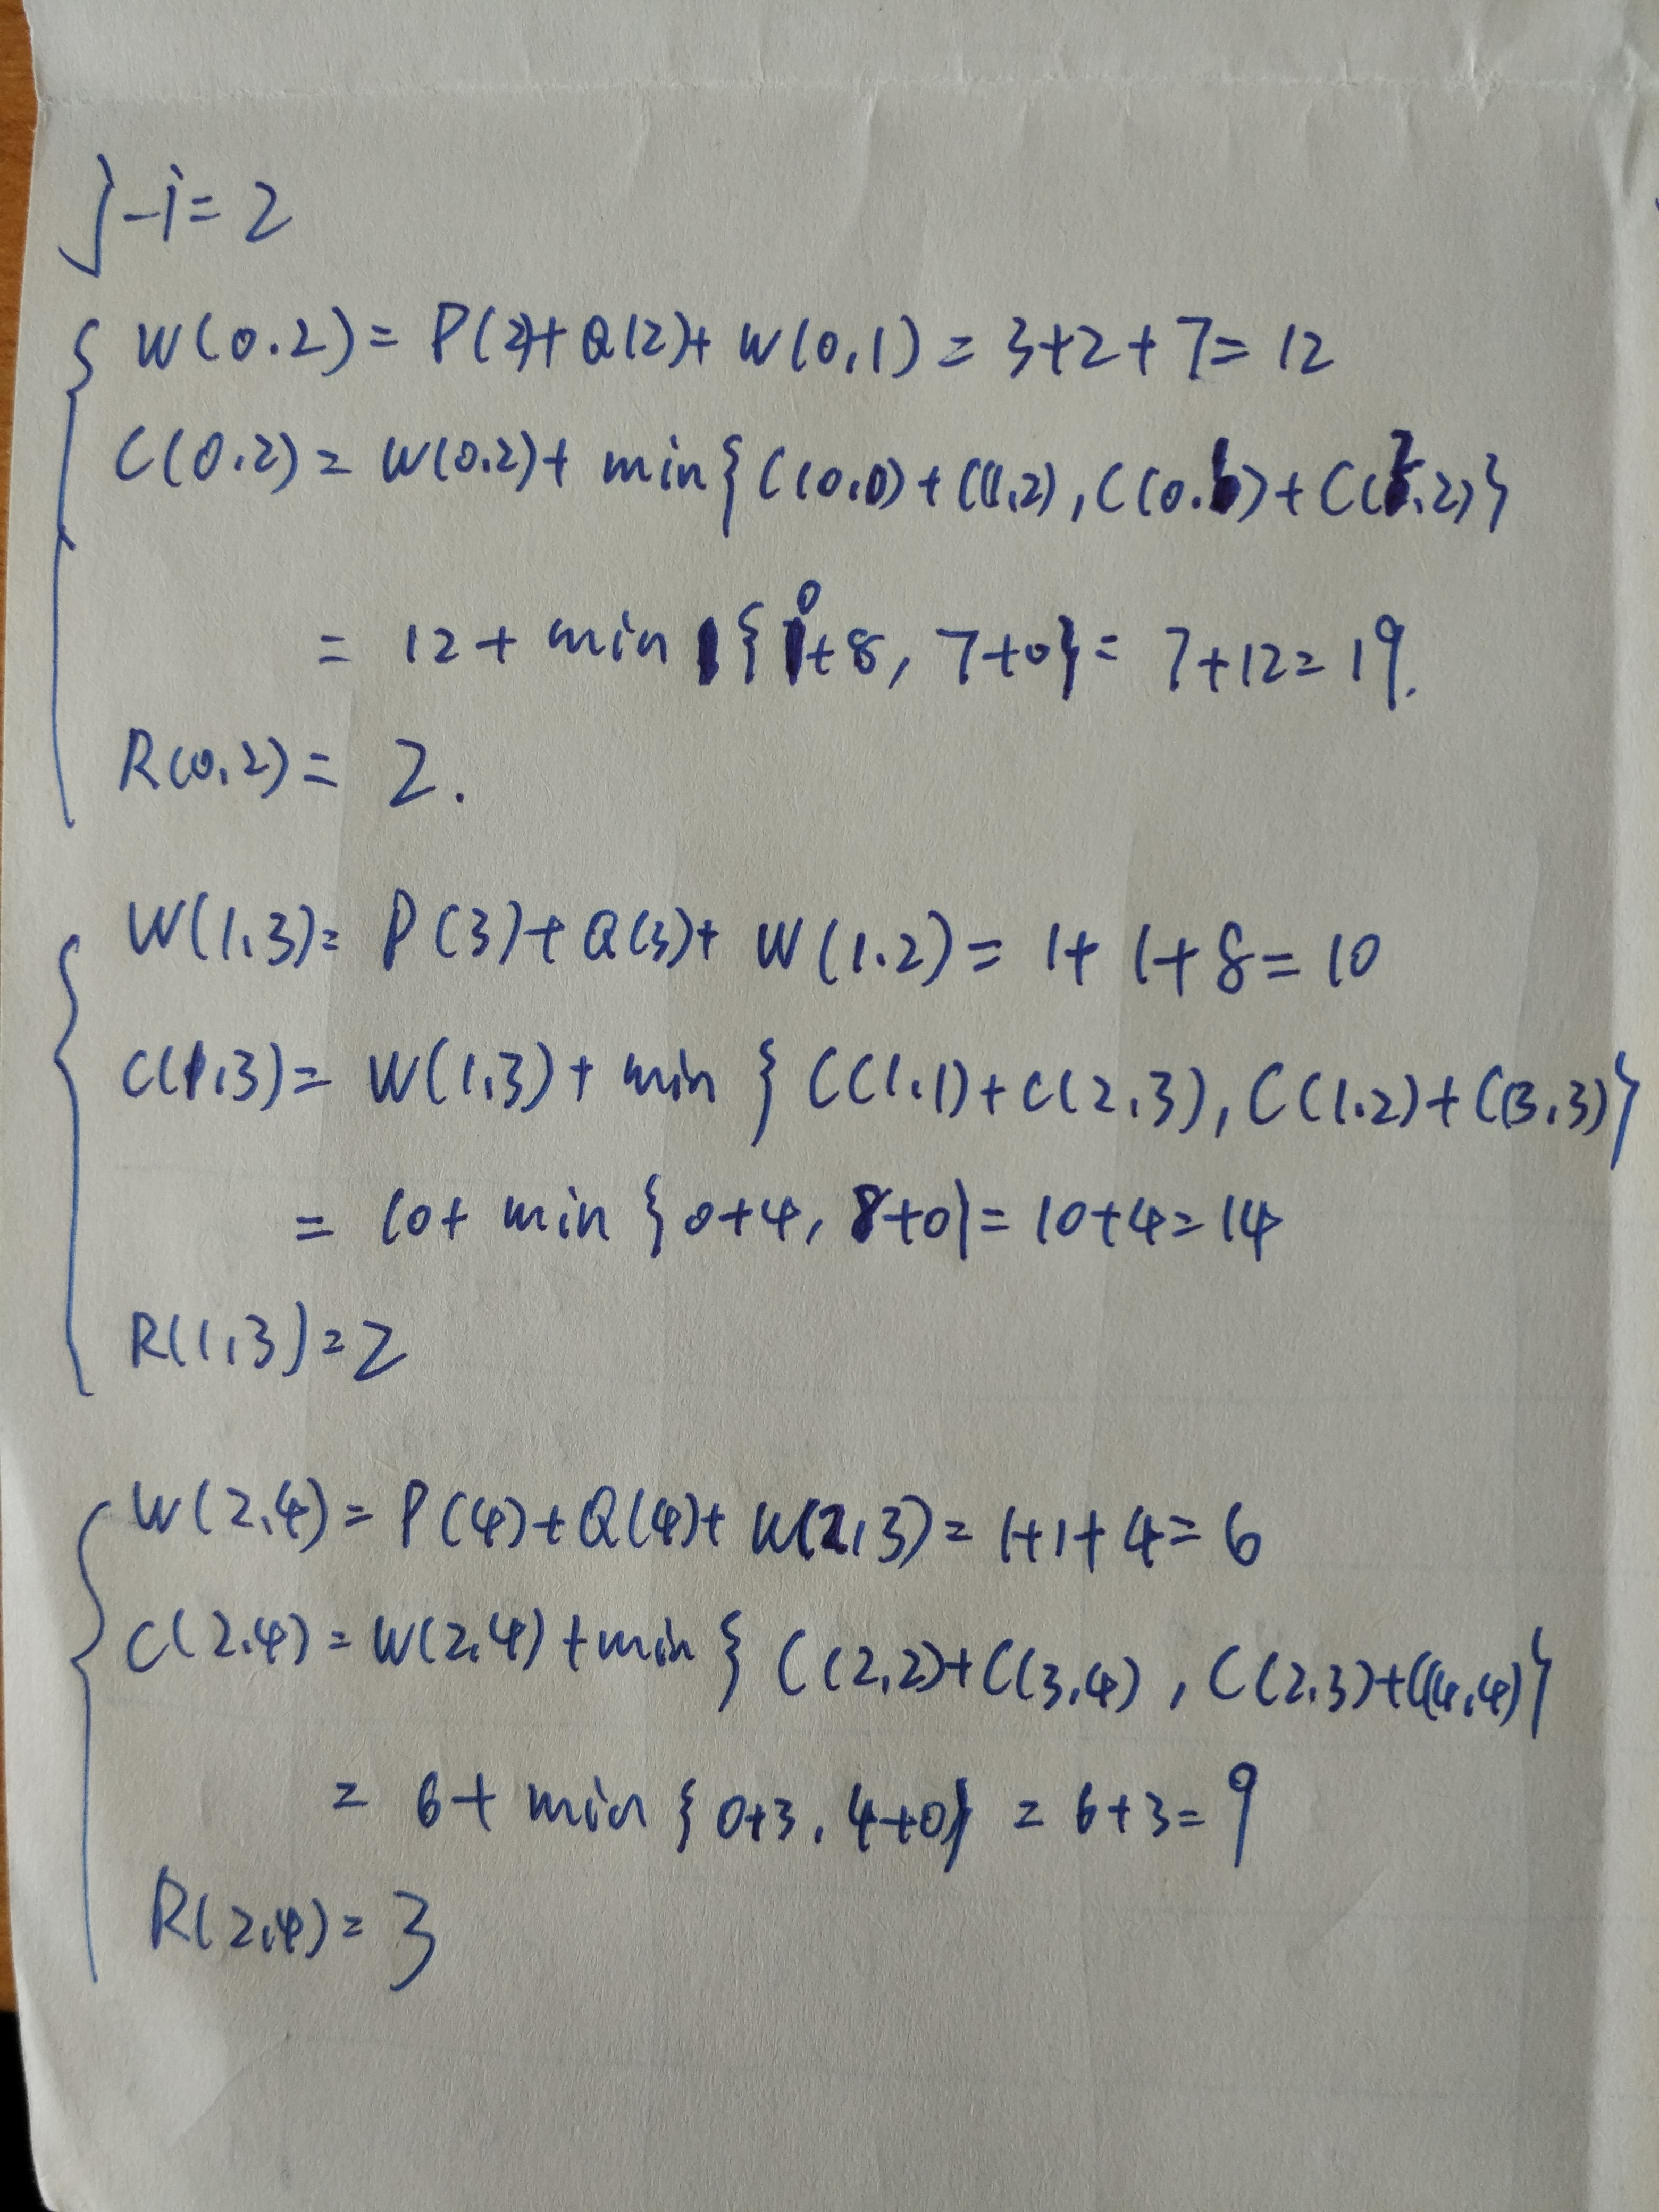 j-i=2
W(0.2)= P(2)+Q(2)+ W(0,1) = 3+2+7= 12
C(0.2)= W(0.2)+ min{C(0.0)+C(1,2), C(0.1)+C(2.2)}
= 12+ min {0+8, 7+0}= 7+12=19.
R(0.2)= 2.
W(1.3)= P(3)+Q(3)+ W(1.2)= 1+1+8=10
C(1,3)= W(1,3)+ min {C(1.1)+C(2,3), C(1.2)+C(3.3)}
= 10+ min {0+4, 8+0}= 10+4=14
R(1,3)=2
W(2.4)= P(4)+Q(4)+ W(2,3)= 1+1+4=6
C(2.4)= W(2.4)+min { C(2,2)+C(3,4), C(2.3)+C(4,4)}
= 6+ min {0+3, 4+0} = 6+3=9
R(2,4)= 3